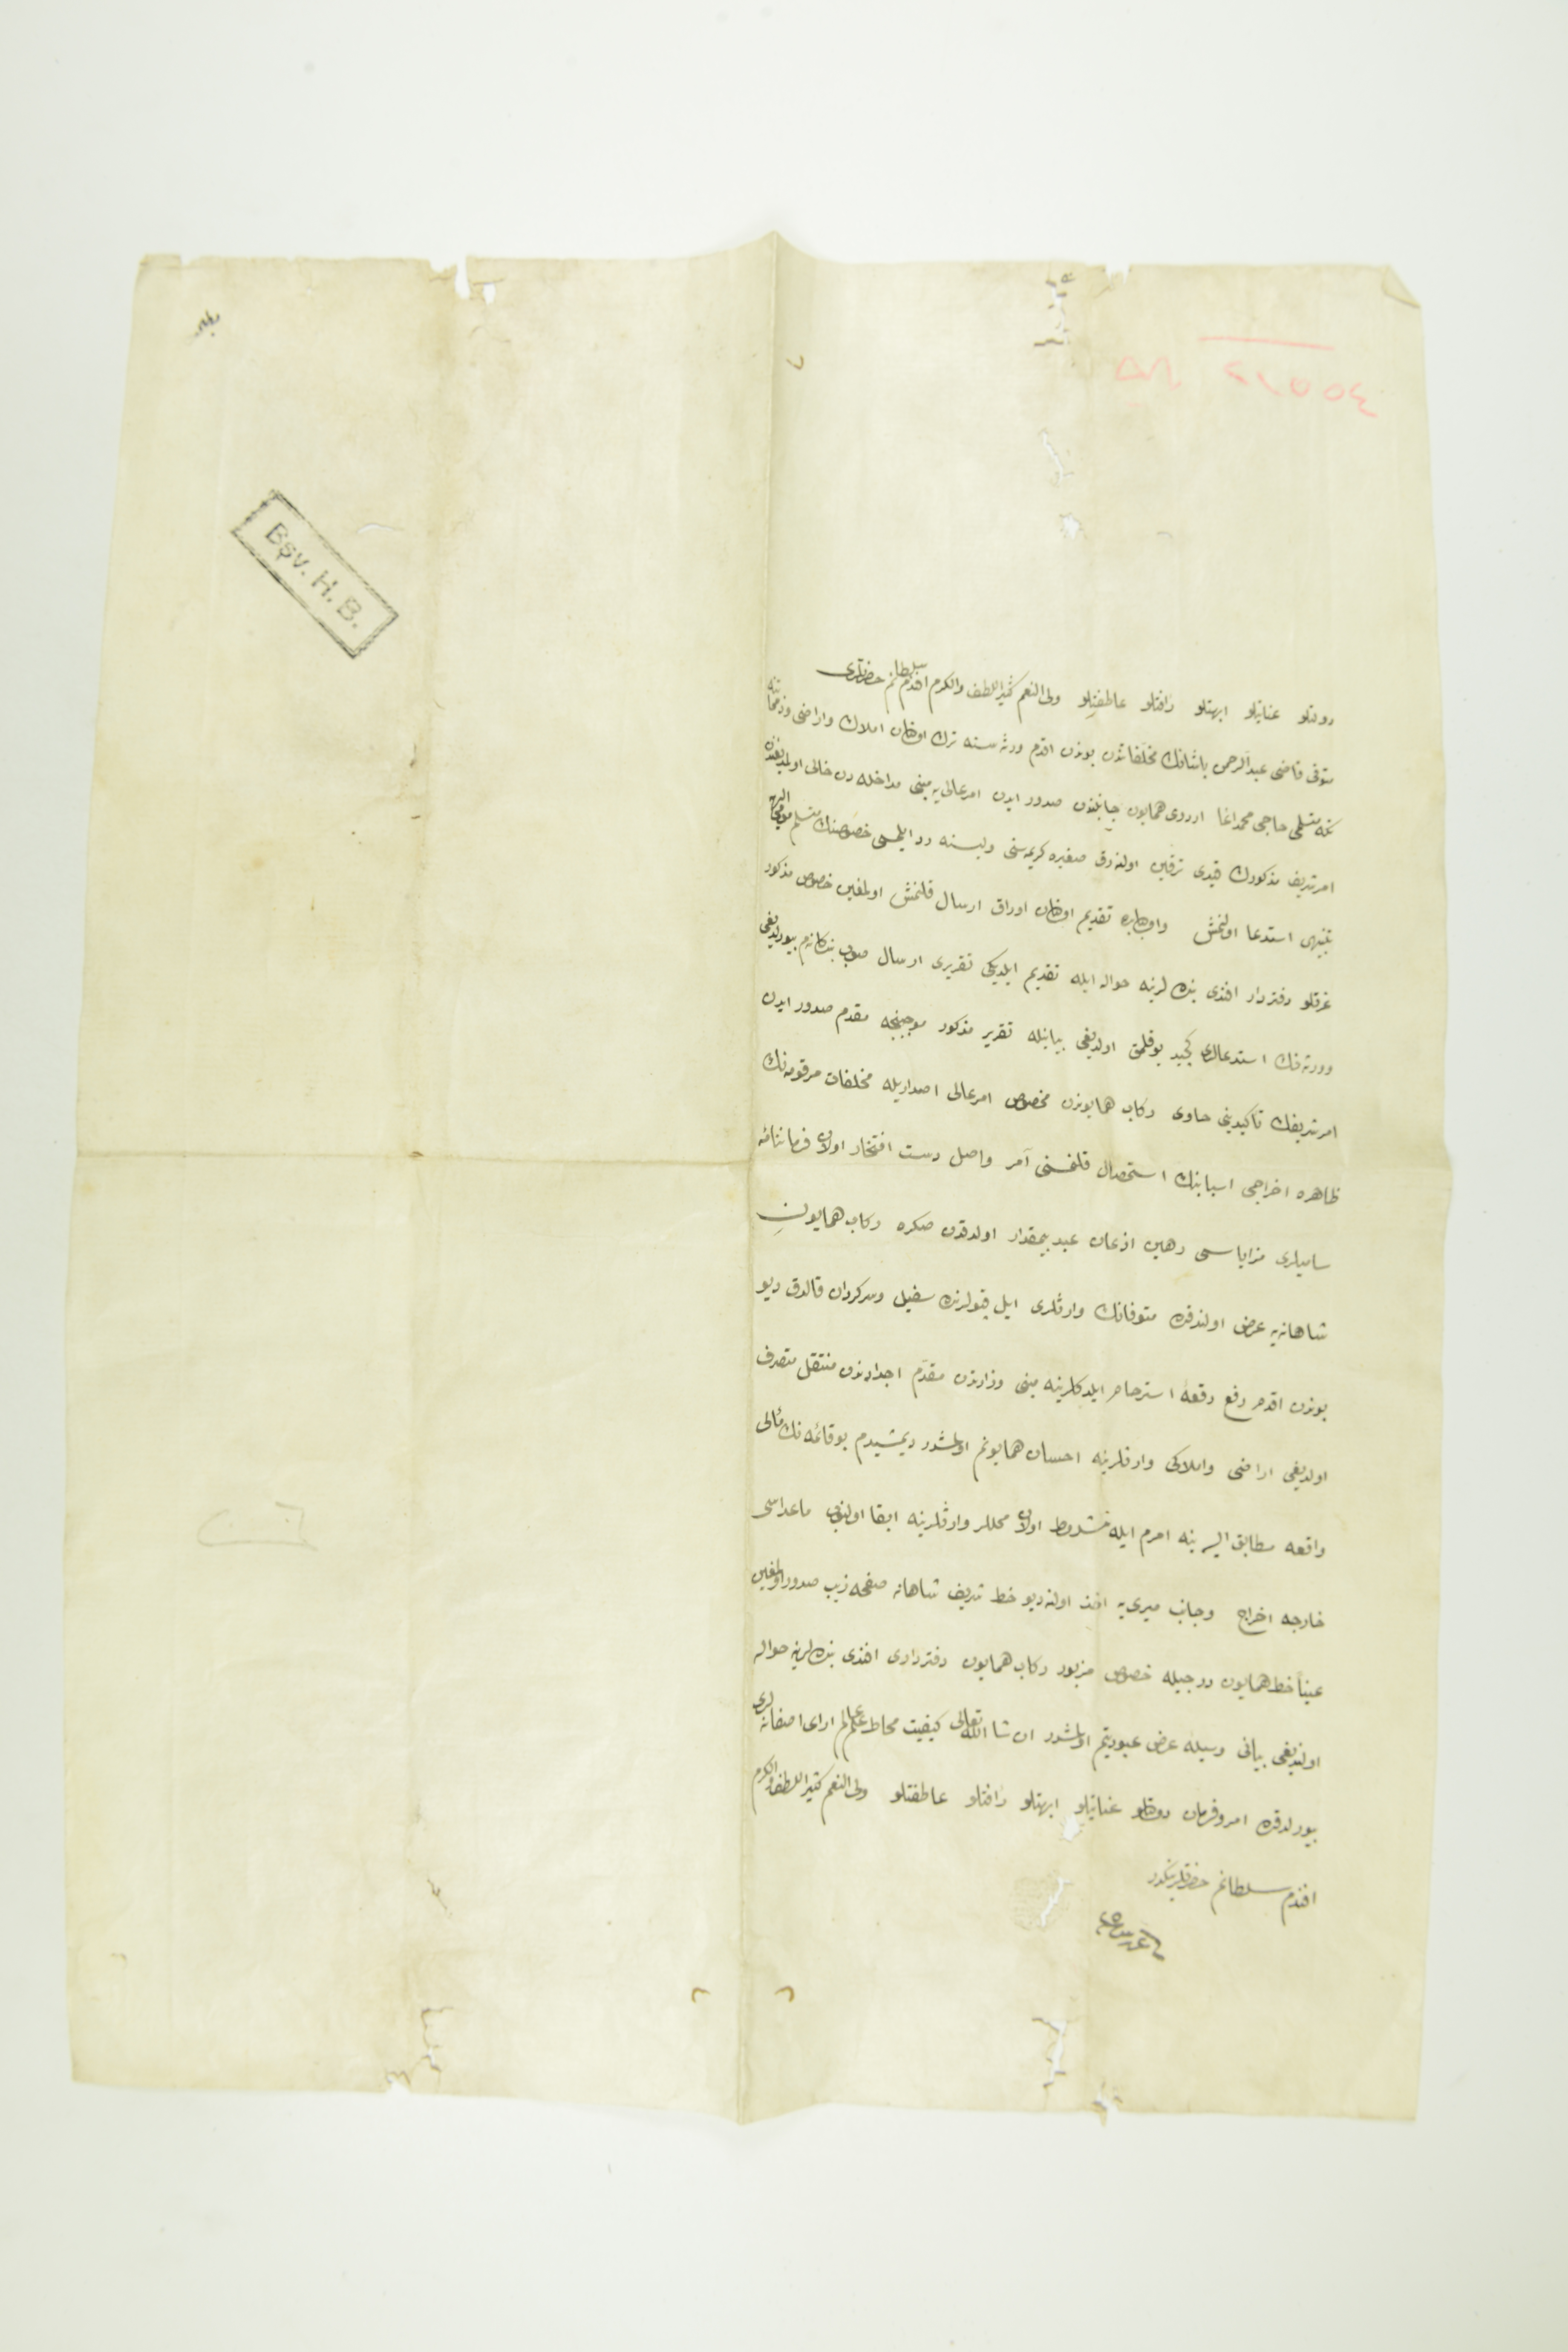 Bşv. H. B.
دولتلو عنايتلو ابهتلو رأفتلو عاطفتلو ولی النعم كثير اللطف والكرم افندم سلطانم حضرتلری
متوفی قاضی عبدالرحمن پاشانك مخلفاتندن بوندن اقدم ورثه سنه ترك اولنان املاك واراضی
تكه متسلمی حاجی محمد اغا اردوی همايون جانبندن صدور ايدن امر عالی يه مبنی مداخله دن خالی اولمديغندن
امر شريف مذكورك قيدی ترقين اولنه رق صغيره كريمه سنی وليسنه رد ايلمسی خصوصنك متسلم مومی اليهه
تنبيهی استدعا اولنمش واول بابده تقديم اولنان اوراق ارسال قلنمش اولمغين خصوص مذكور
عزتلو دفتردار افندی بنده لرينه حواله ايله تقديم ايلديكی تقريری ارسال صوب بنده كانه م بيورلديغی
وورثه نك استدعالری كجيد يوقلمق اولديغی بيانيله تقرير مذكور موجبنجه مقدم صدور ايدن
امر شريفك تأكيدينی حاوی ركاب همايوندن مخصوص امر عالی اصداريله مخلفات مرقومه نك
ظاهره اخراجی اسبابنك استحصال قلنمسنی آمر واصل دست افتخار اولان فرماننامهٔ
ساميلری مزاياسی رهين اذعان عبد بيمقدار اولدقدن صكره ركاب همايون
شاهانه يه عرض اولندقده متوفانك وارثلری ايل قپولرنده سفيل وسركردان قالدق ديو
بوندن اقدم رفع رقعهٔ استرحام ايلدكلرينه مبنی وزارتدن مقدم اجدادندن منتقل متصرف
اولديغی اراضی واملاكی وارثلرينه احسان همايونم اولمشدر ديمشيدم بو قائمه نك مألی
واقعه مطابق ايسه ينه امرم ايله مشروط اولان محللر وارثلرينه ابقا اولنوب ماعداسی
خارجه اخراج وجانب ميری يه اخذ اولنه ديو خط شريف شاهانه صفحه زيب صدور اولمغين
عيناً خط همايون درجيله خصوص مزبور ركاب همايون دفترداری افندی بنده لرينه حواله
اولنديغی بيانی وسيلهٔ عرض عبوديتم اولمشدر ان شا الله تعالی كيفيت محاط علم عالم آرای اصفانه لری
بيورلدقده امر وفرمان دولتلو عنايتلو ابهتلو رأفتلو عاطفتلو ولی النعم كثير اللطف والكرم
افندم سلطانم حضرتلرينكدر